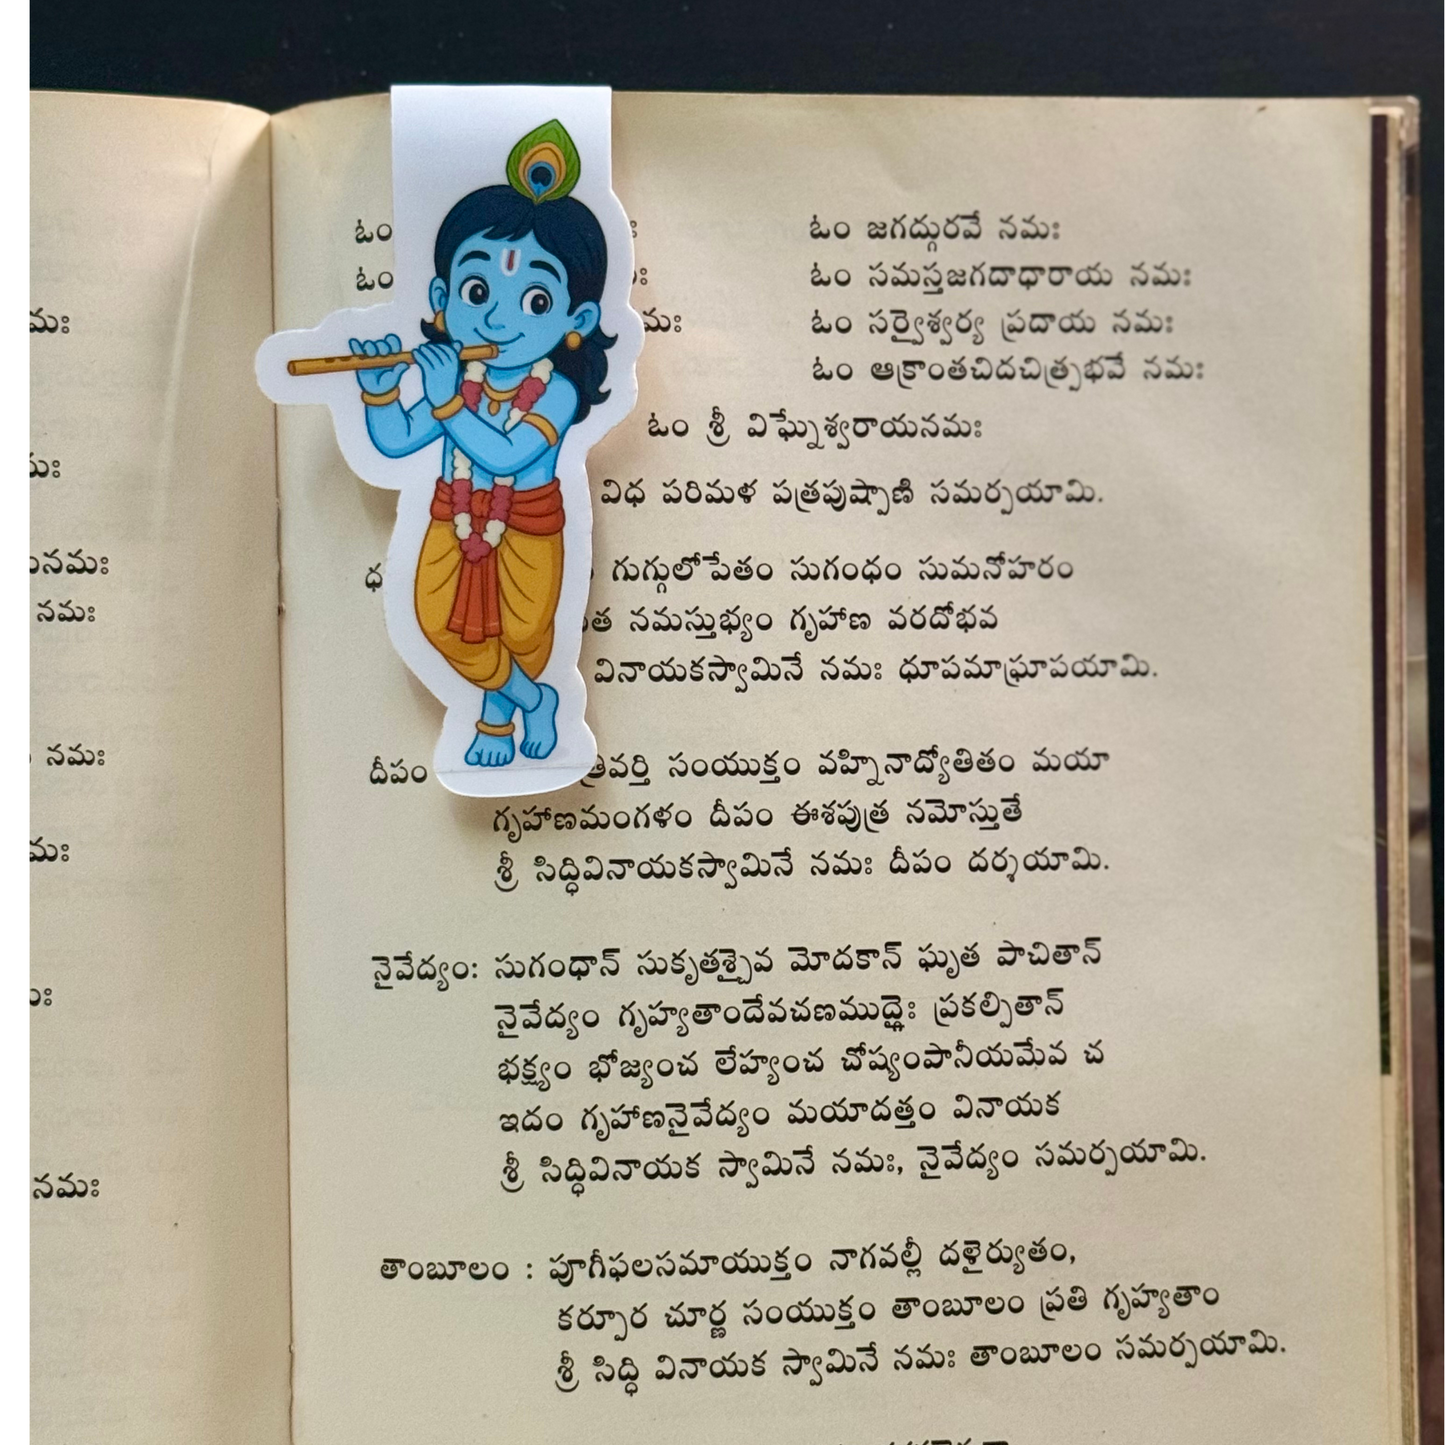 మః
మః
నమః
నమః
నమః
మః
నమః
ఓం
ఓం జగద్గురవే నమః
ఓం
ఓం సమస్తజగదాధారాయ నమః
మః
ఓం సర్వైశ్వర్య ప్రదాయ నమః
ఓం ఆక్రాంతచిదచిత్ప్రభవే నమః
ఓం శ్రీ విఘ్నేశ్వరాయనమః
విధ పరిమళ పత్రపుష్పాణి సమర్పయామి.
గుగ్గులోపేతం సుగంధం సుమనోహరం
నమస్తుభ్యం గృహాణ వరదోభవ
వినాయకస్వామినే నమః ధూపమాఘ్రాపయామి.
దీపం త్రివర్తి సంయుక్తం వహ్నినాద్యోతితం మయా
గృహాణమంగళం దీపం ఈశపుత్ర నమోస్తుతే
శ్రీ సిద్ధివినాయకస్వామినే నమః దీపం దర్శయామి.
నైవేద్యం: సుగంధాన్ సుకృతశ్చైవ మోదకాన్ ఘృత పాచితాన్
నైవేద్యం గృహ్యతాందేవచణముద్గైః ప్రకల్పితాన్
భక్ష్యం భోజ్యంచ లేహ్యంచ చోష్యంపానీయమేవ చ
ఇదం గృహాణనైవేద్యం మయాదత్తం వినాయక
శ్రీ సిద్ధివినాయక స్వామినే నమః, నైవేద్యం సమర్పయామి.
తాంబూలం : పూగీఫలసమాయుక్తం నాగవల్లీ దళైర్యుతం,
కర్పూర చూర్ణ సంయుక్తం తాంబూలం ప్రతి గృహ్యతాం
శ్రీ సిద్ధి వినాయక స్వామినే నమః తాంబూలం సమర్పయామి.